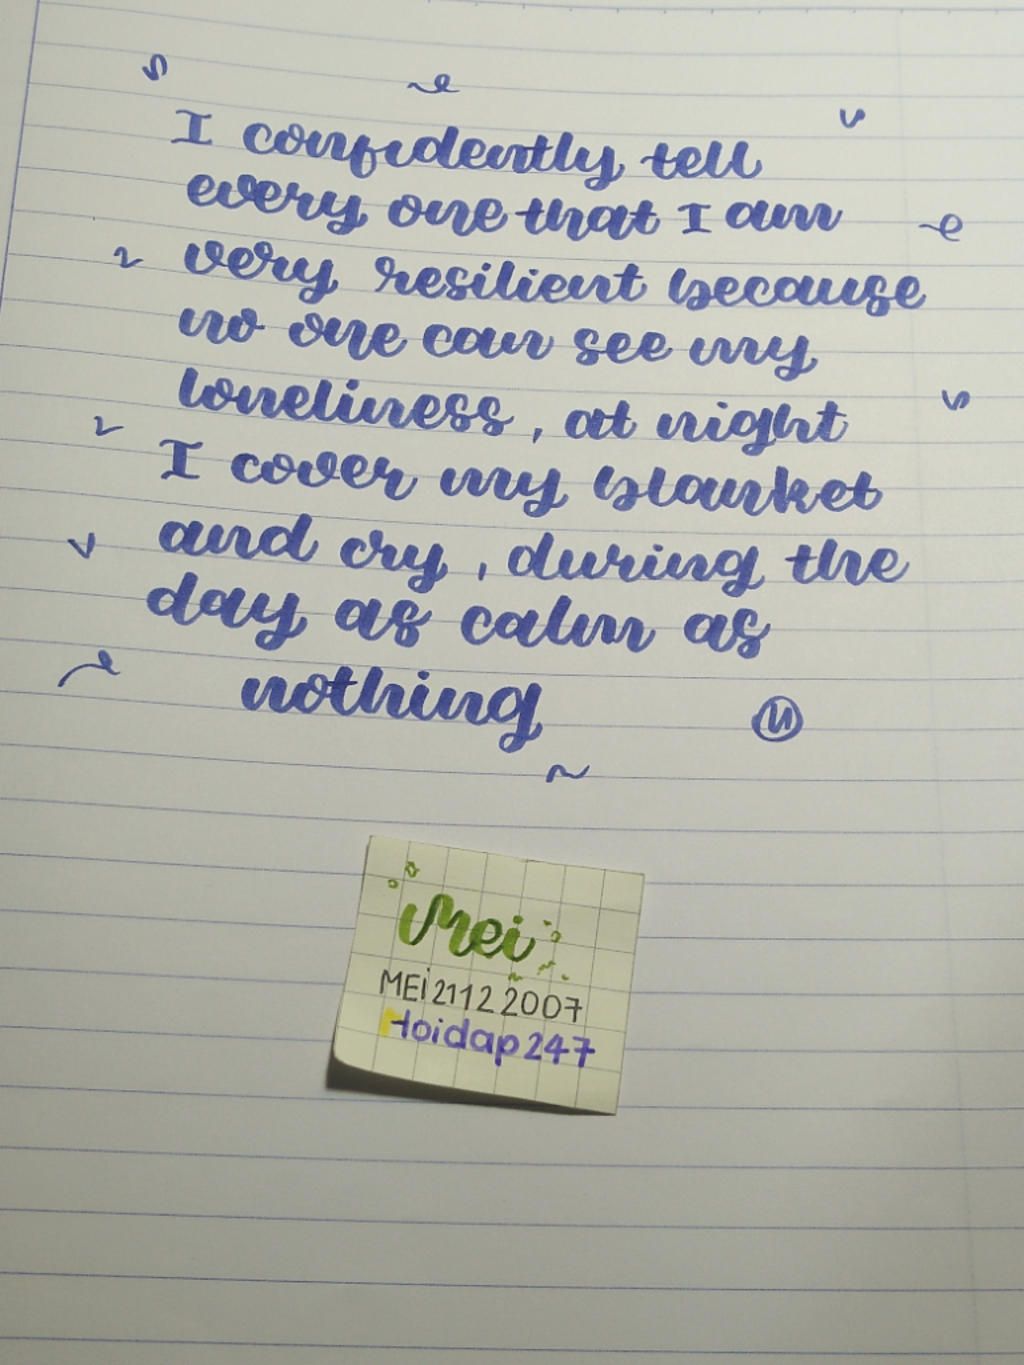 I confidently tell
every one that I am
very resilient because
no one can see my
loneliness, at night
I cover my blanket
and cry, during the
day as calm as
nothing
M
Mei
MEi 2112 2007
Hoidap247